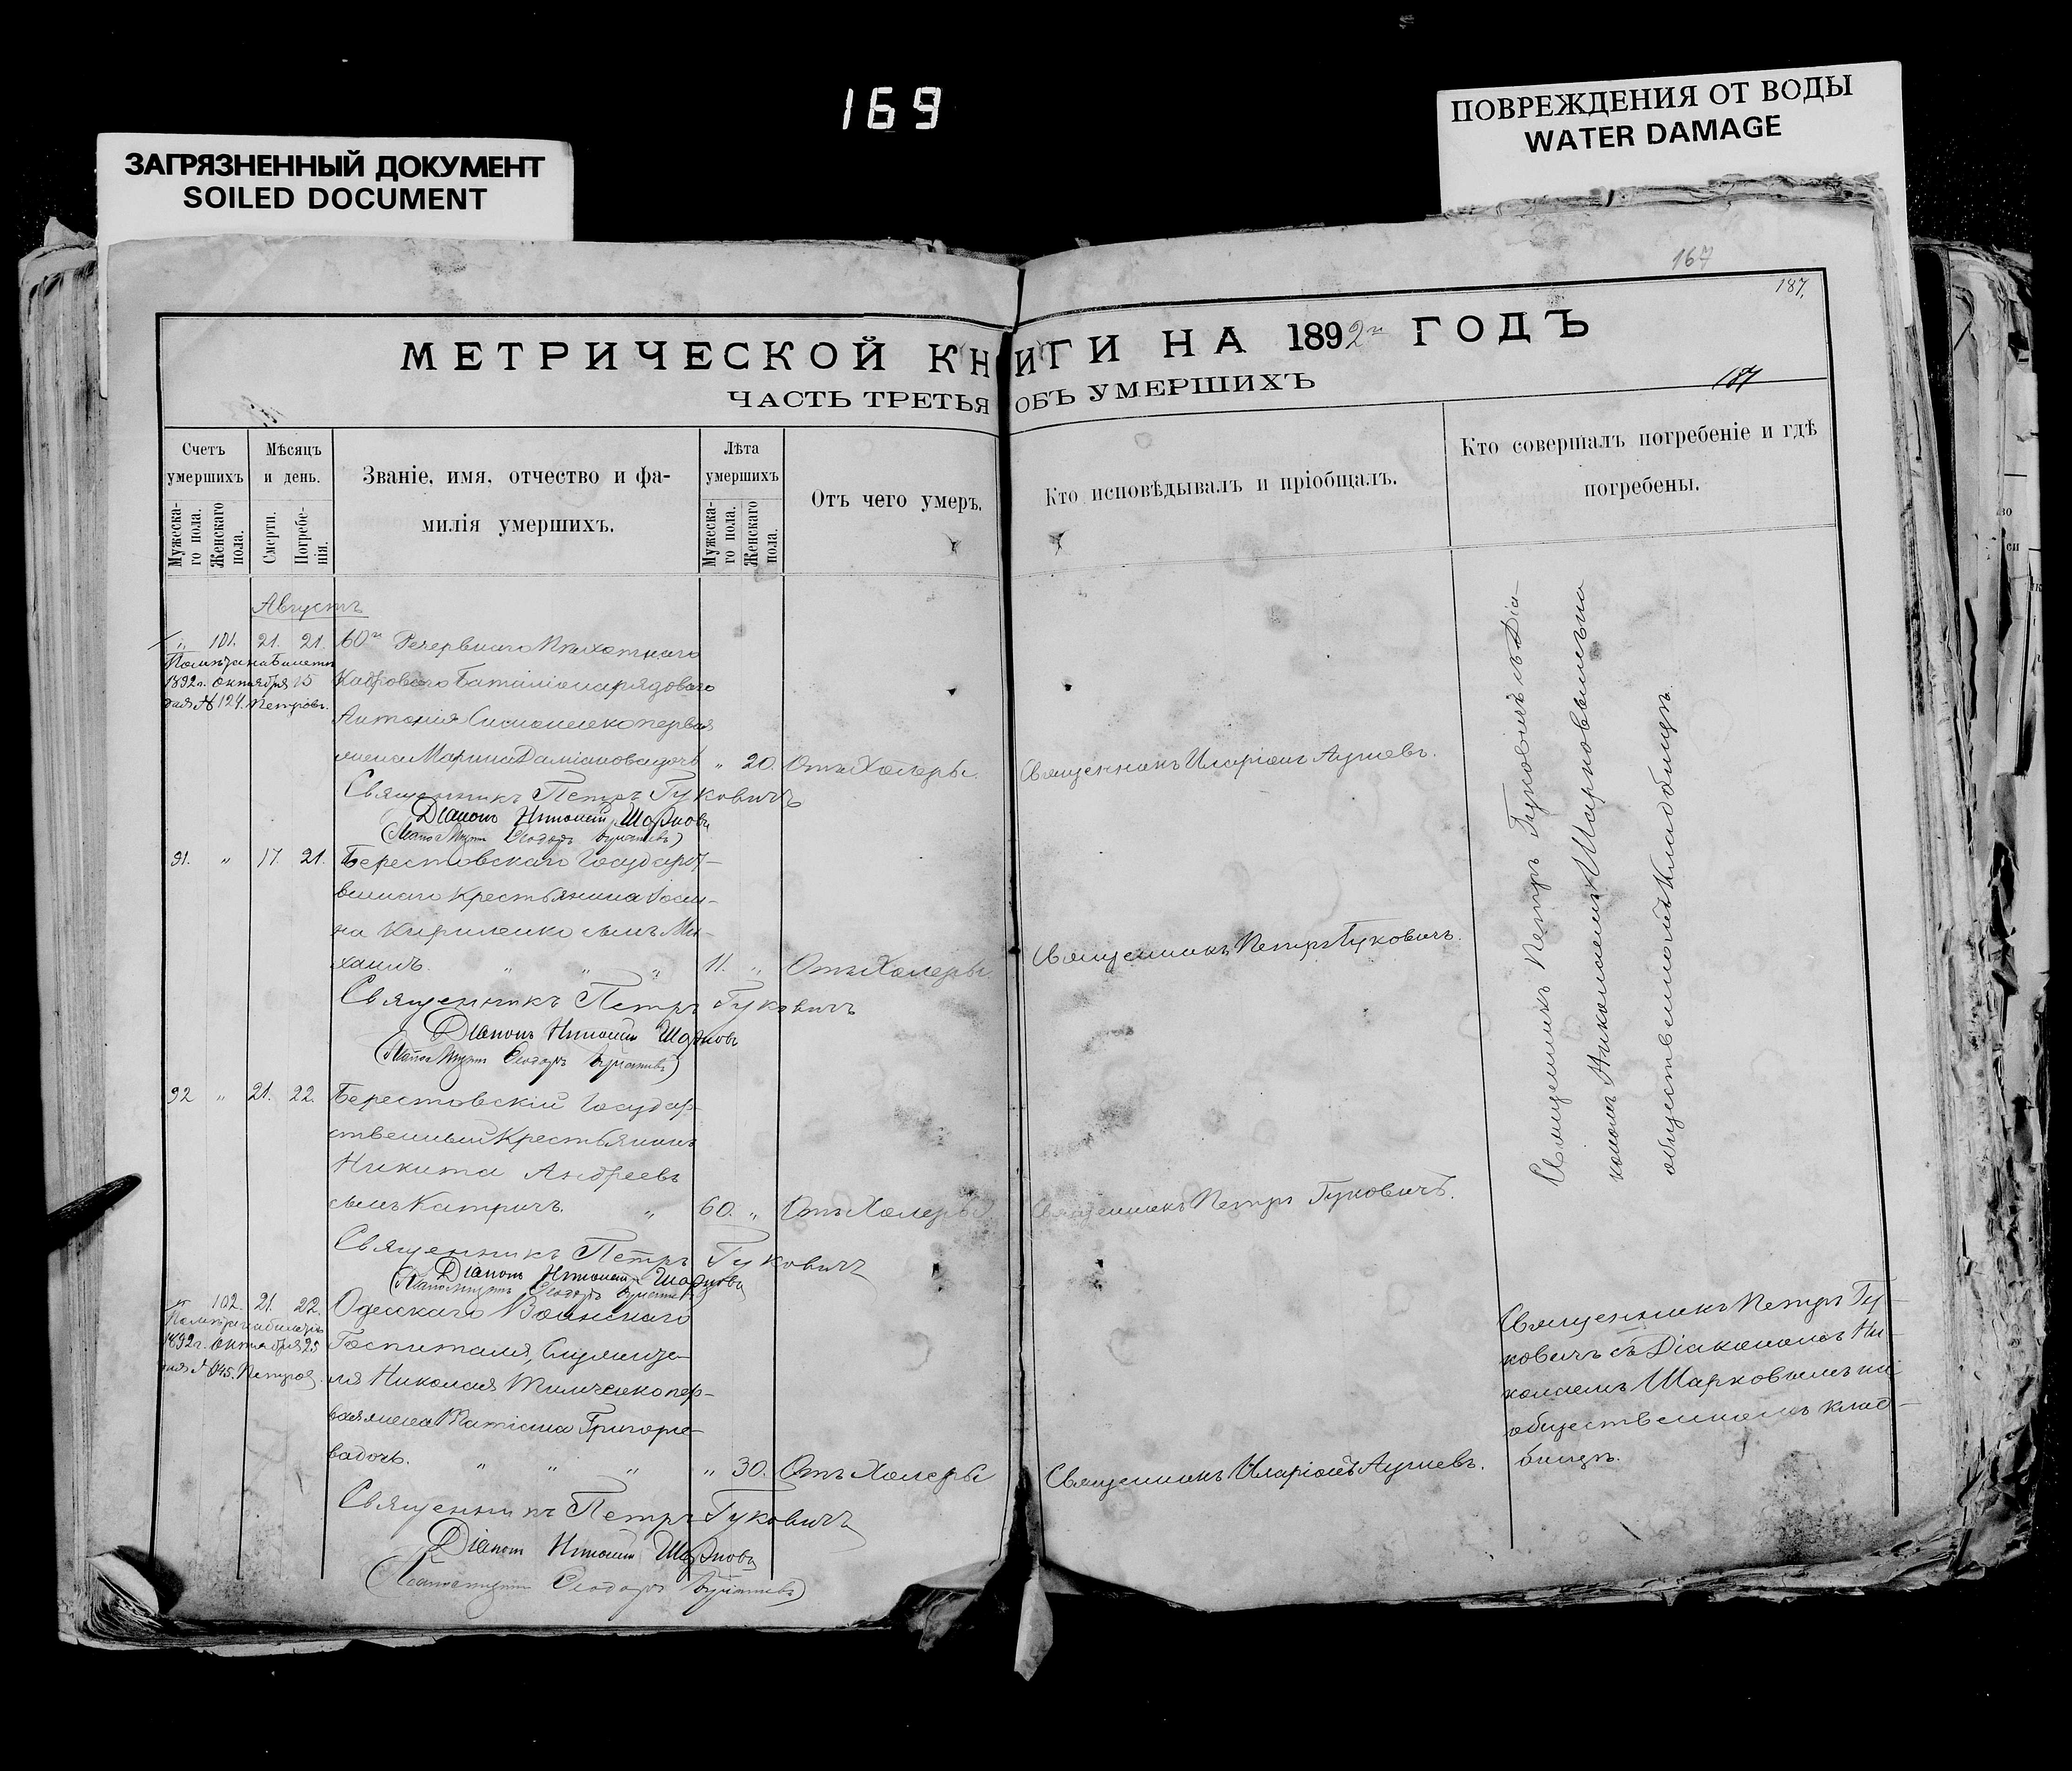 169
ЗАГРЯЗНЕННЫЙ ДОКУМЕНТ
SOILED DOCUMENT
ПОВРЕЖДЕНИЯ ОТ ВОДЫ
WATER DAMAGE
167
187.
МЕТРИЧЕСКОЙ КНИГИ НА 1892 ГОДЪ
ЧАСТЬ ТРЕТЬЯ ОБЪ УМЕРШИХЪ
Счетъ умершихъ
Мужескаго пола.
Женскаго пола.
Мѣсяцъ и день.
Смерти.
Погребенія.
Званіе, имя, отчество и фамилія умершихъ.
Лѣта умершихъ
Мужескаго пола.
Женскаго пола.
Отъ чего умеръ.
Кто исповѣдывалъ и пріобщалъ.
Кто совершалъ погребеніе и гдѣ погребены.
Августъ
" 101. 21. 21. 60го Резервнаго Пѣхотнаго
1892г. октября 15
Кадроваго Баталіона рядового
№ 124. Петровъ.
Антонія первая
жена Марина Даміанова дочь " 20. Отъ Холеры. Священникъ Иларіонъ
Священникъ Петръ Гуковичъ
Діаконъ Николай Шарковъ
91. " 17. 21. Берестовскаго Государст-
веннаго Крестьянина Іоси-
на Кириленко сынъ Ми-
хаилъ. " " " 11. " Отъ Холеры Священникъ Петръ Гуковичъ.
Священникъ Петръ Гуковичъ
Діаконъ Николай Шарковъ
92 " 21. 22. Берестовскій Государ-
ственный Крестьянинъ
Никита Андреевъ
сынъ Катричъ. " 60. " Отъ Холеры Священникъ Петръ Гуковичъ.
Священникъ Петръ Гуковичъ
Діаконъ Николай Шарковъ
Священникъ Петръ Гуковичъ съ Діа-
кономъ Николаемъ Шарковымъ на
общественномъ кладбищѣ.
" 102. 21. 22. Одесскаго Военнаго
1892г. октября 25
Госпиталя, Служите-
ля Николая Тимченко пер-
вая жена Татіана Григорье-
ва дочь. " " " " 30. Отъ Холеры Священникъ Иларіонъ
Священникъ Петръ Гуковичъ
Діаконъ Николай Шарковъ
Священникъ Петръ Гу-
ковичъ съ Діакономъ Ни-
колаемъ Шарковымъ на
общественномъ клад-
бищѣ.